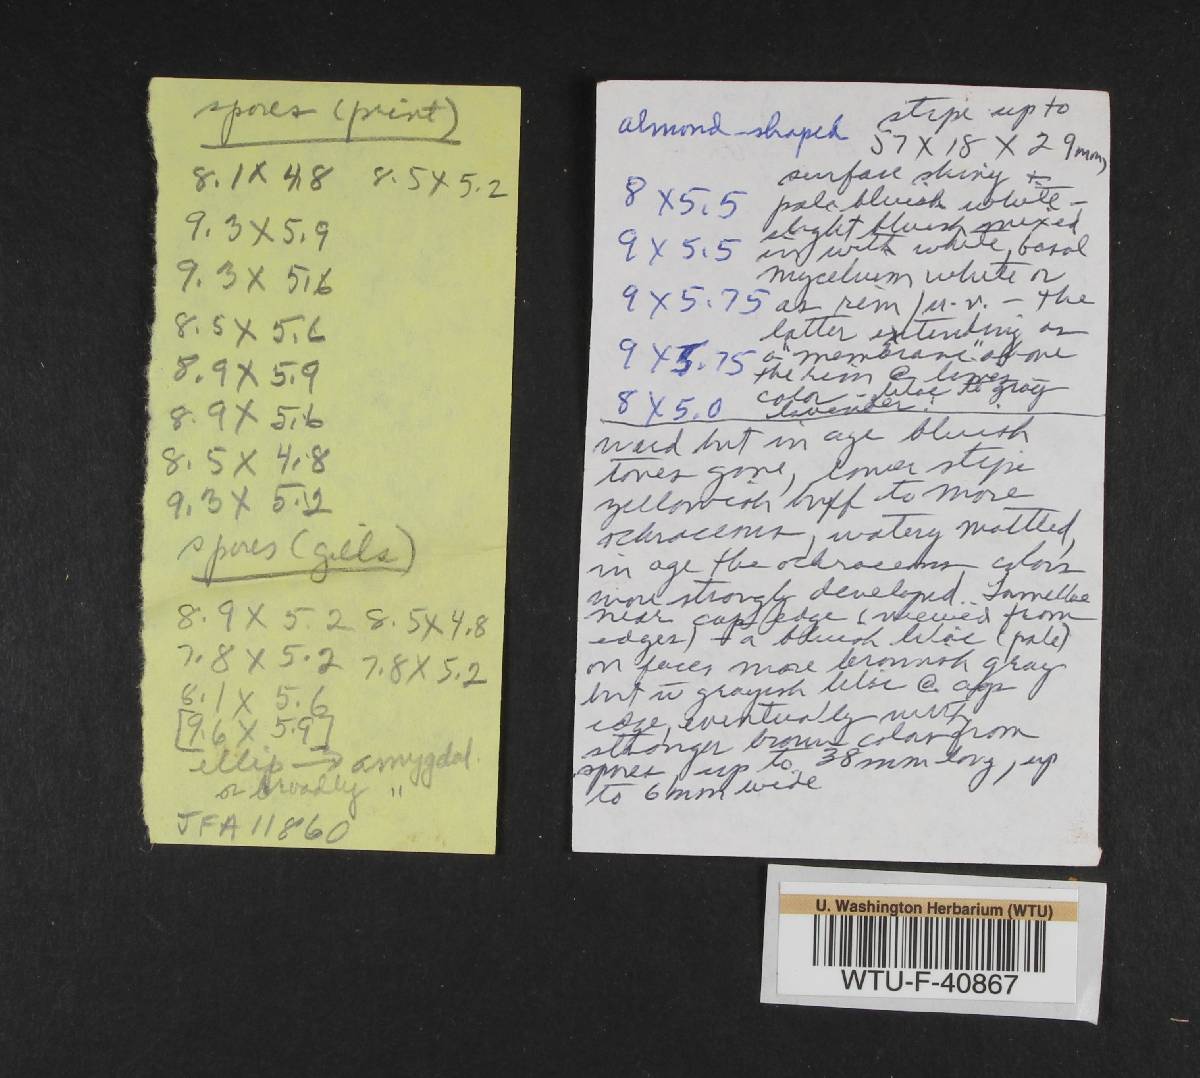 spores (print)
8.1 X 4.8 8.5 X 5.2
9.3 X 5.9
9.3 X 5.6
8.5 X 5.6
8.9 X 5.9
8.9 X 5.6
8.5 X 4.8
9.3 X 5.2
spores (gills)
8.9 X 5.2 8.5 X 4.8
7.8 X 5.2 7.8 X 5.2
8.1 X 5.6
[9.6 X 5.9]
ellip → amygdal.
or broadly "
JFA 11860
almond-shaped
8 X 5.5
9 X 5.5
9 X 5.75
9 X 5.75
8 X 5.0
stipe up to
57 X 18 X 29mm,
surface shiny +
pale bluish white -
slight bluish mixed
in with white, basal
mycelium white or
as rim / u.v. - the
latter extending as
a "membrane" above
the rim @
color - lilac to gray
lavender.
but in age bluish
tones gone, lower stipe
yellowish buff to more
ochraceous, watery mottled,
in age the ochraceous colors
more strongly developed. Lamellae
near cap edge (viewed from
edges) + a bluish lilac (pale)
on faces more brownish gray
but w grayish lilac @
edge, eventually with
stronger brown color from
spores, up to 38mm long, up
to 6mm wide
U. Washington Herbarium (WTU)
WTU-F-40867